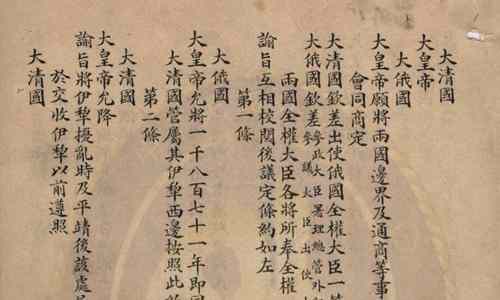 大清國
大皇帝
大俄國
大皇帝願將兩國邊界及通商等事
會同商定
大清國欽差出使俄國全權大臣一
大俄國欽差參政大臣署理總管外
參議大臣出使
兩國全權大臣各將所奉全權
諭旨互相校閱後議定條約如左
第一條
大俄國
大皇帝允將一千八百七十一年即同
大清國管屬其伊犁西邊按照此
第二條
大清國
大皇帝允降
諭旨將伊犁擾亂時及平靖後該處
於交收伊犁以前遵照
大清國